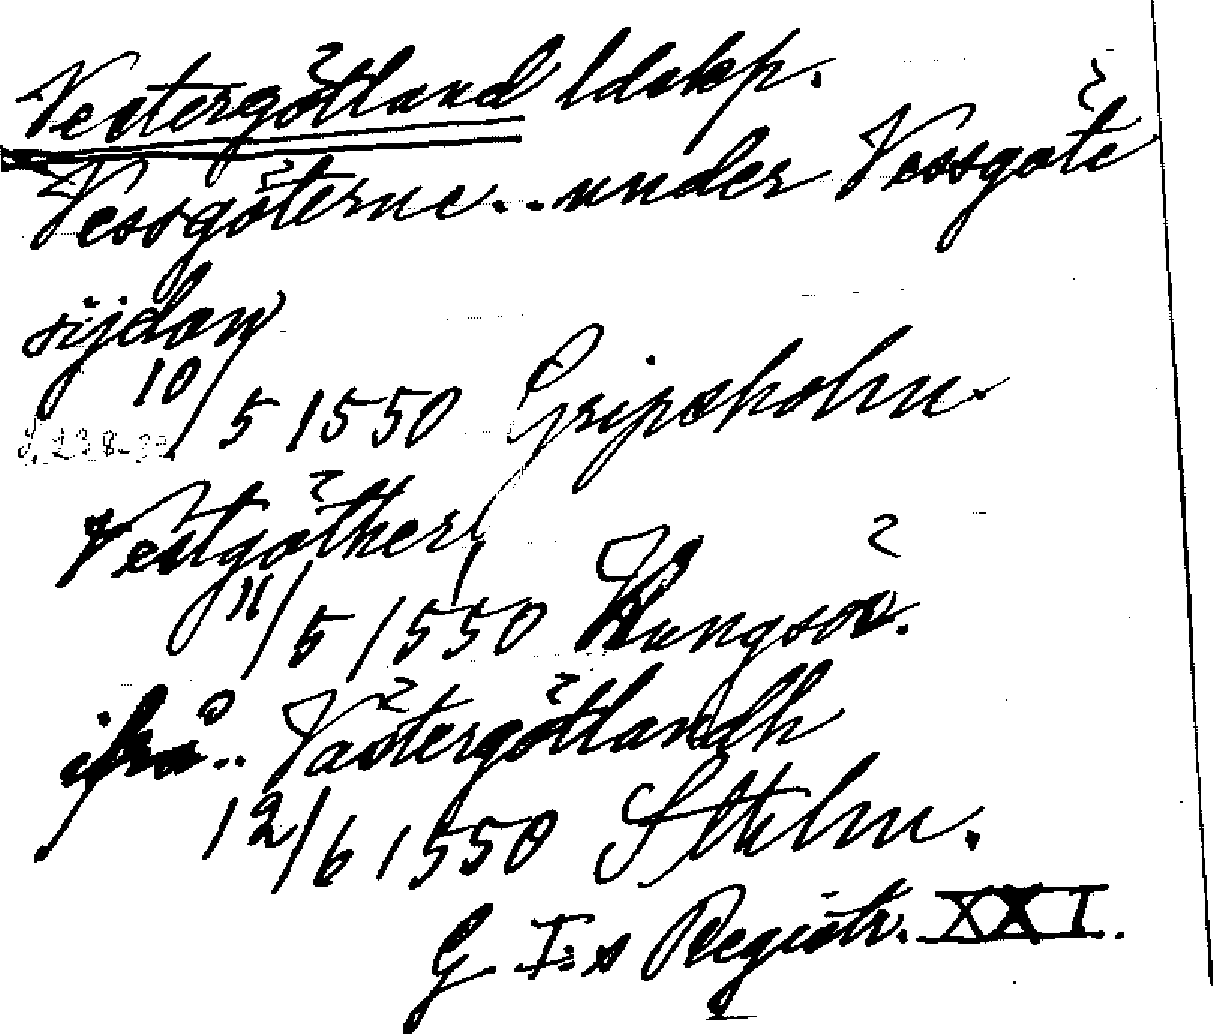 Vestergötland ldskp.
Vessgöterne.. under Vessgöte
sijdan
10/5 1550 Gripsholm.
s. 238-39
Vestgöther
11/5 1550 Kungsör.
ifrå.. Västergötlandh
12/6 1550 Sthlm.
G I:s Registr. XXI.